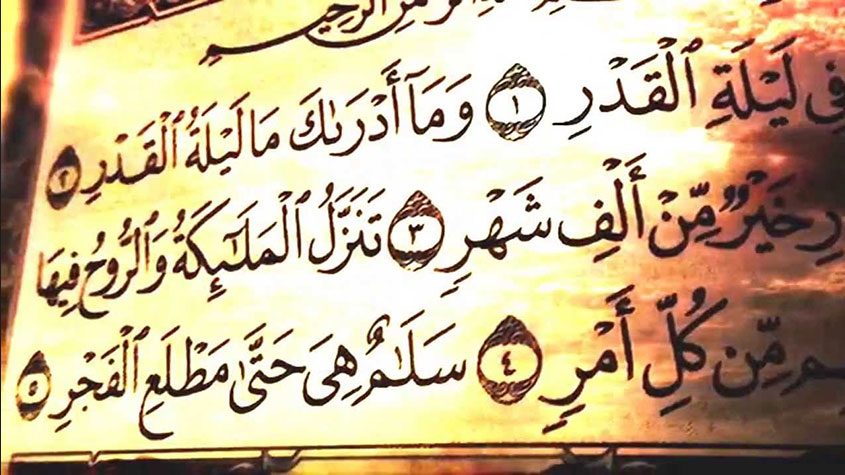 الرَّحِيمِ
فِي لَيْلَةِ ٱلْقَدْرِ ١ وَمَآ أَدْرَىٰكَ مَا لَيْلَةُ ٱلْقَدْرِ ٢
خَيْرٌ مِّنْ أَلْفِ شَهْرٍ ٣ تَنَزَّلُ ٱلْمَلَٰٓئِكَةُ وَٱلرُّوحُ فِيهَا
مِّن كُلِّ أَمْرٍ ٤ سَلَٰمٌ هِىَ حَتَّىٰ مَطْلَعِ ٱلْفَجْرِ ٥